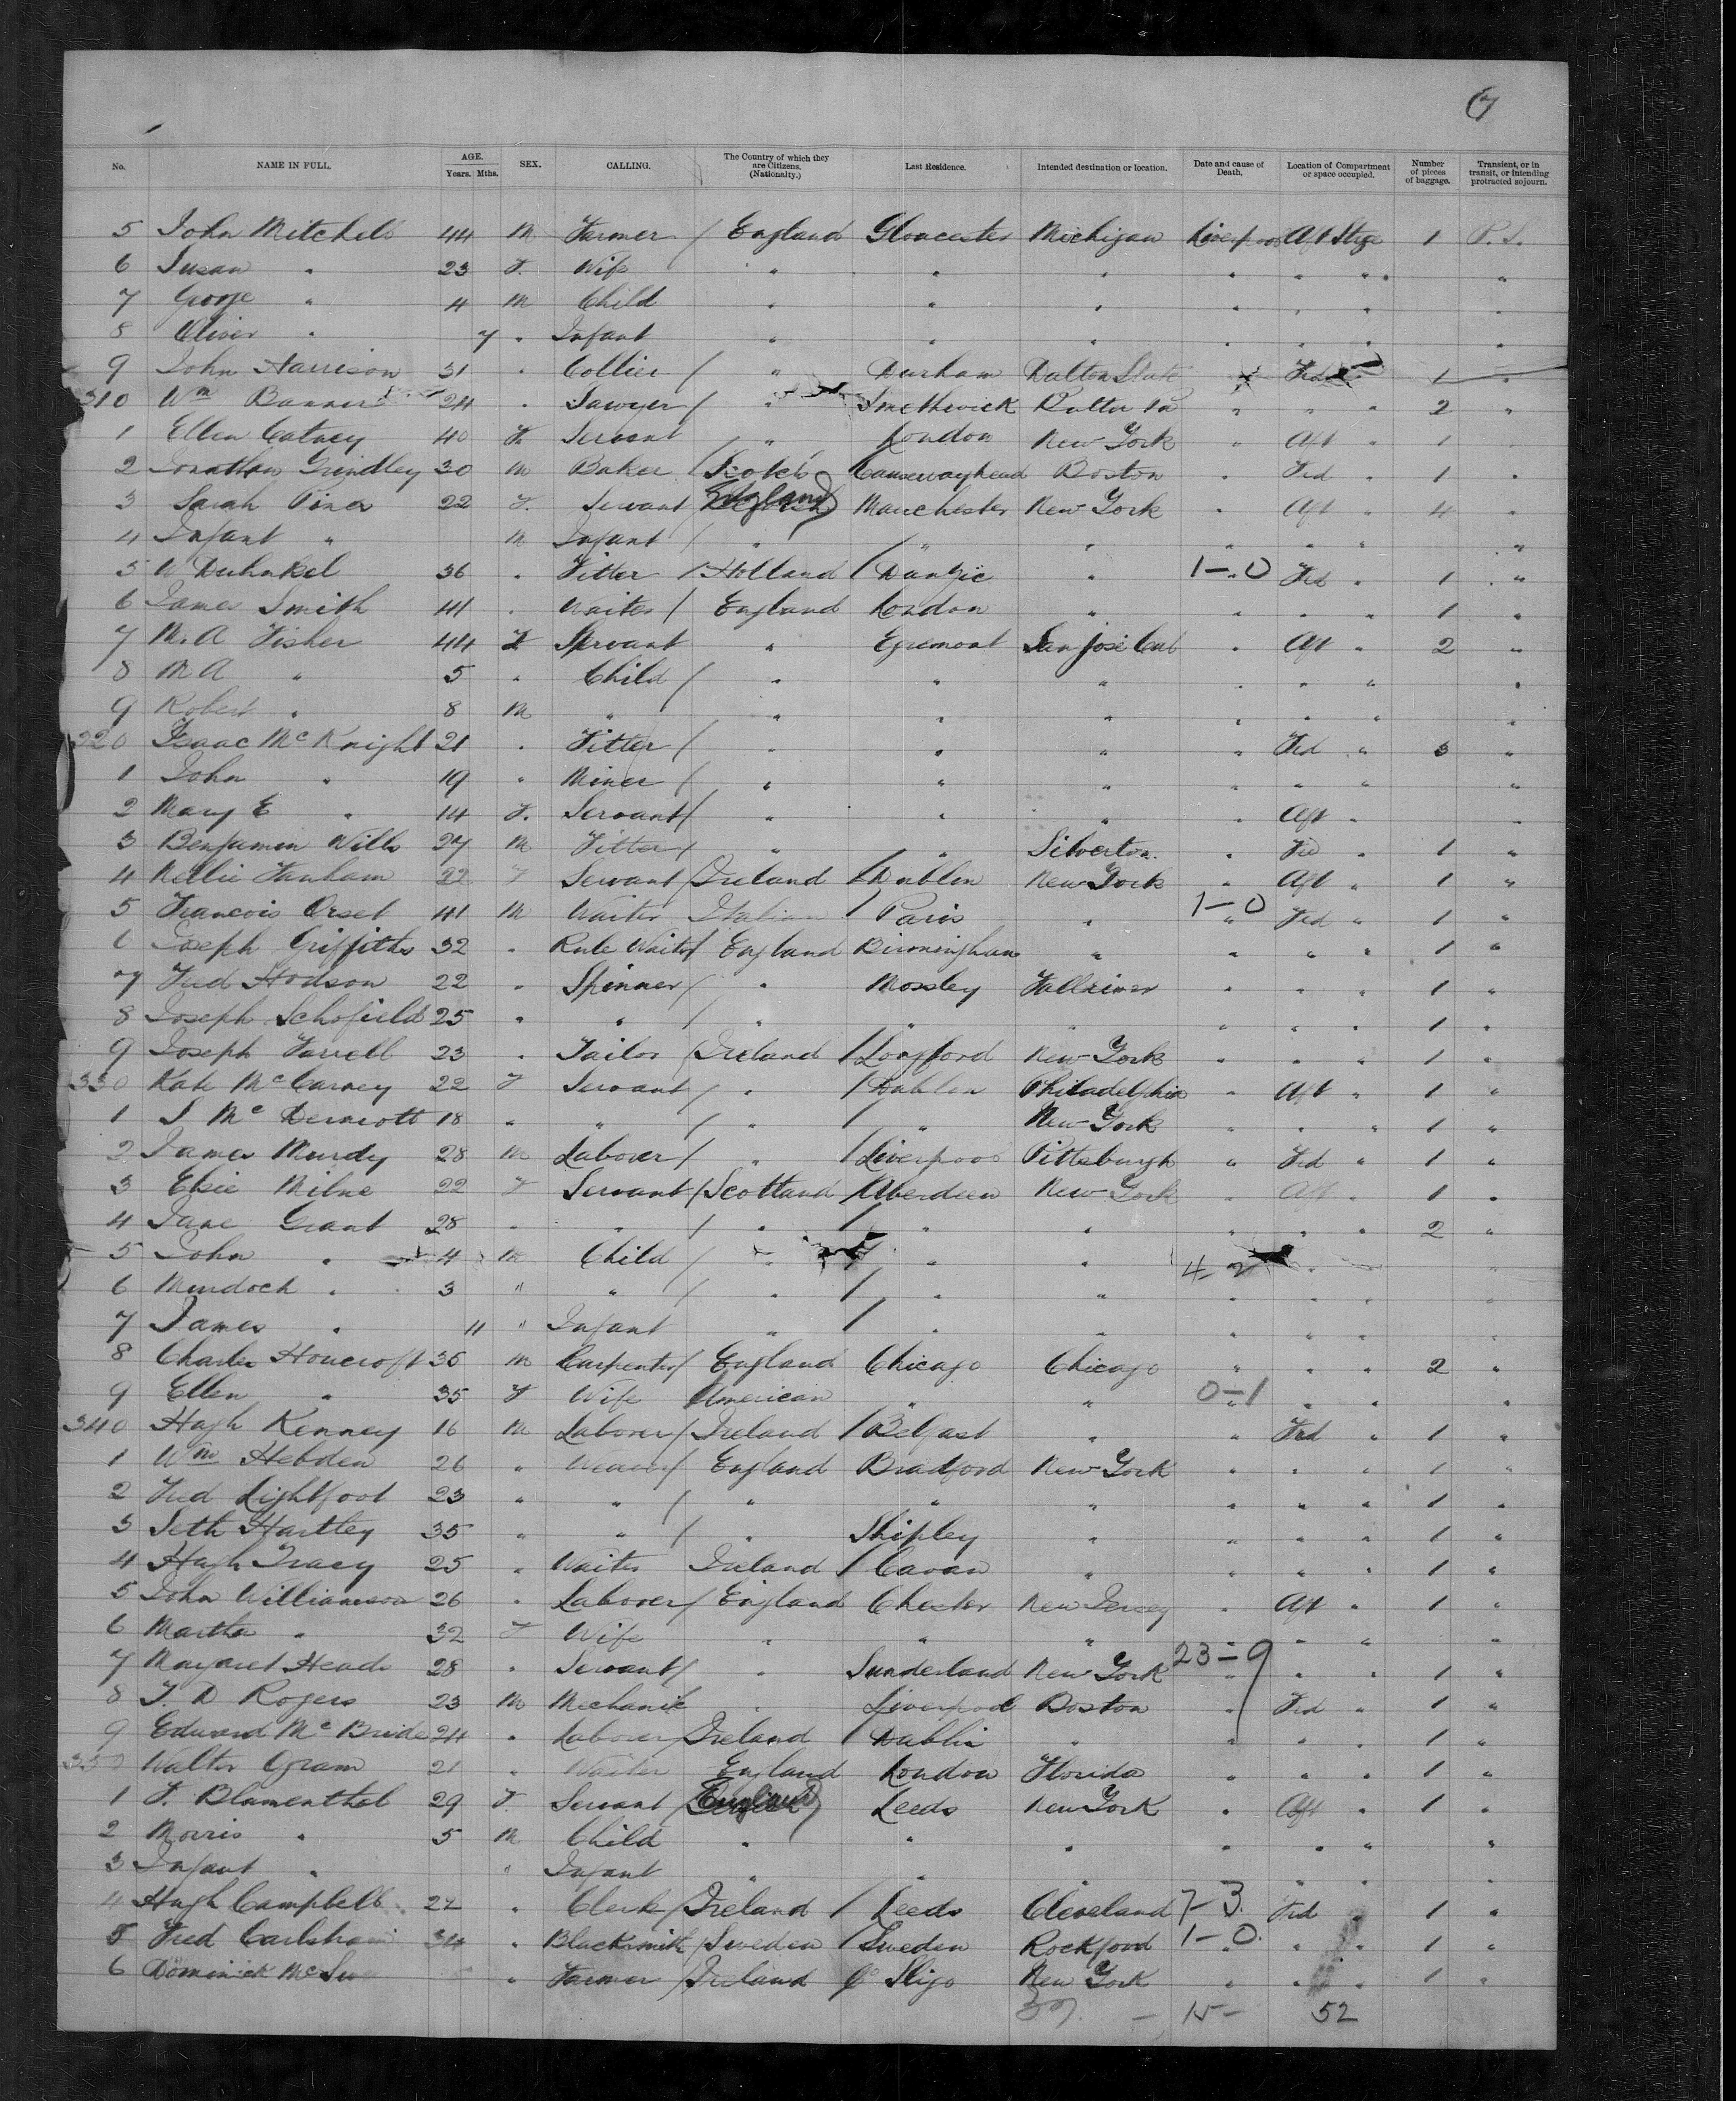 7
No. NAME IN FULL. AGE. Years. Mths. SEX. CALLING. The Country of which they are Citizens. (Nationality.) Last Residence. Intended destination or location. Date and cause of Death. Location of Compartment or space occupied. Number of pieces of baggage. Transient, or in transit, or intending protracted sojourn.
5 John Mitchell 44 M Farmer / England Gloucester Michigan Liverpool Aft Stge 1 P.S.
6 Susan " 23 F. Wife " " " " " " "
7 George " 4 M Child " " " " " " "
8 Oliver " 7 " Infant " " " " " " "
9 John Harrison 31 " Collier / " Durham Dalton " Frd 1 "
310 Wm 24 " Sawyer / " Smethwick Dalton " " " 2 "
1 Ellen 40 F. Servant / " London New York " Aft " 1 "
2 Jonathan Grindley 30 M Baker / Scotch / Causewayhead Boston " Frd " 1 "
3 Sarah 22 F. Servant / England Manchester New York " Aft " 4 "
4 Infant " M Infant / " / " " " " " "
5 W 36 " Fitter / Holland / Danzic " 1-0 Frd " 1 "
6 James Smith 41 " Waiter / England London " " " " 1 "
7 M. A Fisher 44 F Servant " Egremont San José Cal " Aft " 2 "
8 M A " 5 " Child / " " " " " " "
9 Robert " 8 M " " " " " " " "
320 Isaac McKnight 21 " Fitter / " " " " Frd " 3 "
1 John " 19 " Miner / " " " " " " "
2 Mary E " 14 F. Servant / " " " " Aft " "
3 Benjamin Wills 27 M Fitter / " " Silverton. " Frd " 1 "
4 Nellie Fanham 22 F Servant / Ireland / Dublin New York " Aft " 1 "
5 Francois Orsel 41 M Waiter Italian / Paris " 1-0 Frd " 1 "
6 Joseph Griffiths 32 " Rule / England Birmingham " " " " 1 "
7 Fred Hodson 22 " Spinner / " Mossley Fallriver " " " 1 "
8 Joseph Schofield 25 " " / " " " " " " 1 "
9 Joseph Farrell 23 " Tailor / Ireland / Longford New York " " " 1 "
330 Kate McCarney 22 F Servant / " / Dublin Philadelphia " Aft " 1 "
1 S McDermott 18 " " / " / " New York " " " 1 "
2 James Mundy 28 M Laborer / " / Liverpool Pittsburgh " Frd " 1 "
3 Elsie Milne 22 F Servant / Scotland / Aberdeen New York " Aft " 1 "
4 Jane Grant 28 " " / " / " " " " " 2 "
5 John " 4 M Child / " " " 4-2 " "
6 Murdoch " 3 " " / " / " " " " " "
7 James " 11 " Infant " / " " " " " "
8 Charles Howcroft 35 M Carpenter / England Chicago Chicago " " " 2 "
9 Ellen " 35 F Wife American " " 0-1 " " "
340 Hugh Kenney 16 M Laborer / Ireland / Belfast " " Frd " 1 "
1 Wm Hebden 26 " Weaver / England Bradford New York " " " 1 "
2 Fred Lightfoot 23 " " / " " " " " " 1 "
3 Seth Hartley 35 " " / " Shipley " " " " 1 "
4 Hugh Tracy 25 " Waiter Ireland / Cavan " " " " 1 "
5 John Williamson 26 " Laborer / England Chester New Jersey " Aft " 1 "
6 Martha " 32 F Wife " " " " " " "
7 Margaret Heade 28 " Servant / " Sunderland New York 23-9 " " 1 "
8 T. D Rogers 23 M Mechanic " Liverpool Boston " Frd " 1 "
9 Edward McBride 24 " Laborer / Ireland / Dublin " " " " 1 "
350 Walter Gram 21 " Waiter England London Florida " " " 1 "
1 F. Blamenthal 29 F. Servant / England Leeds New York " Aft " 1 "
2 Morris " 5 M Child " " " " " " "
3 Infant " " Infant " " " " " " "
4 Hugh Campbell 22 " Clerk / Ireland / Leeds Cleveland 7-3 Frd " 1 "
5 Fred 34 " Blacksmith / Sweden / Sweden Rockford 1-0 " " 1 "
6 Dominick " Farmer / Ireland / Co Sligo New York " " " 1 "
37. - 15- 52